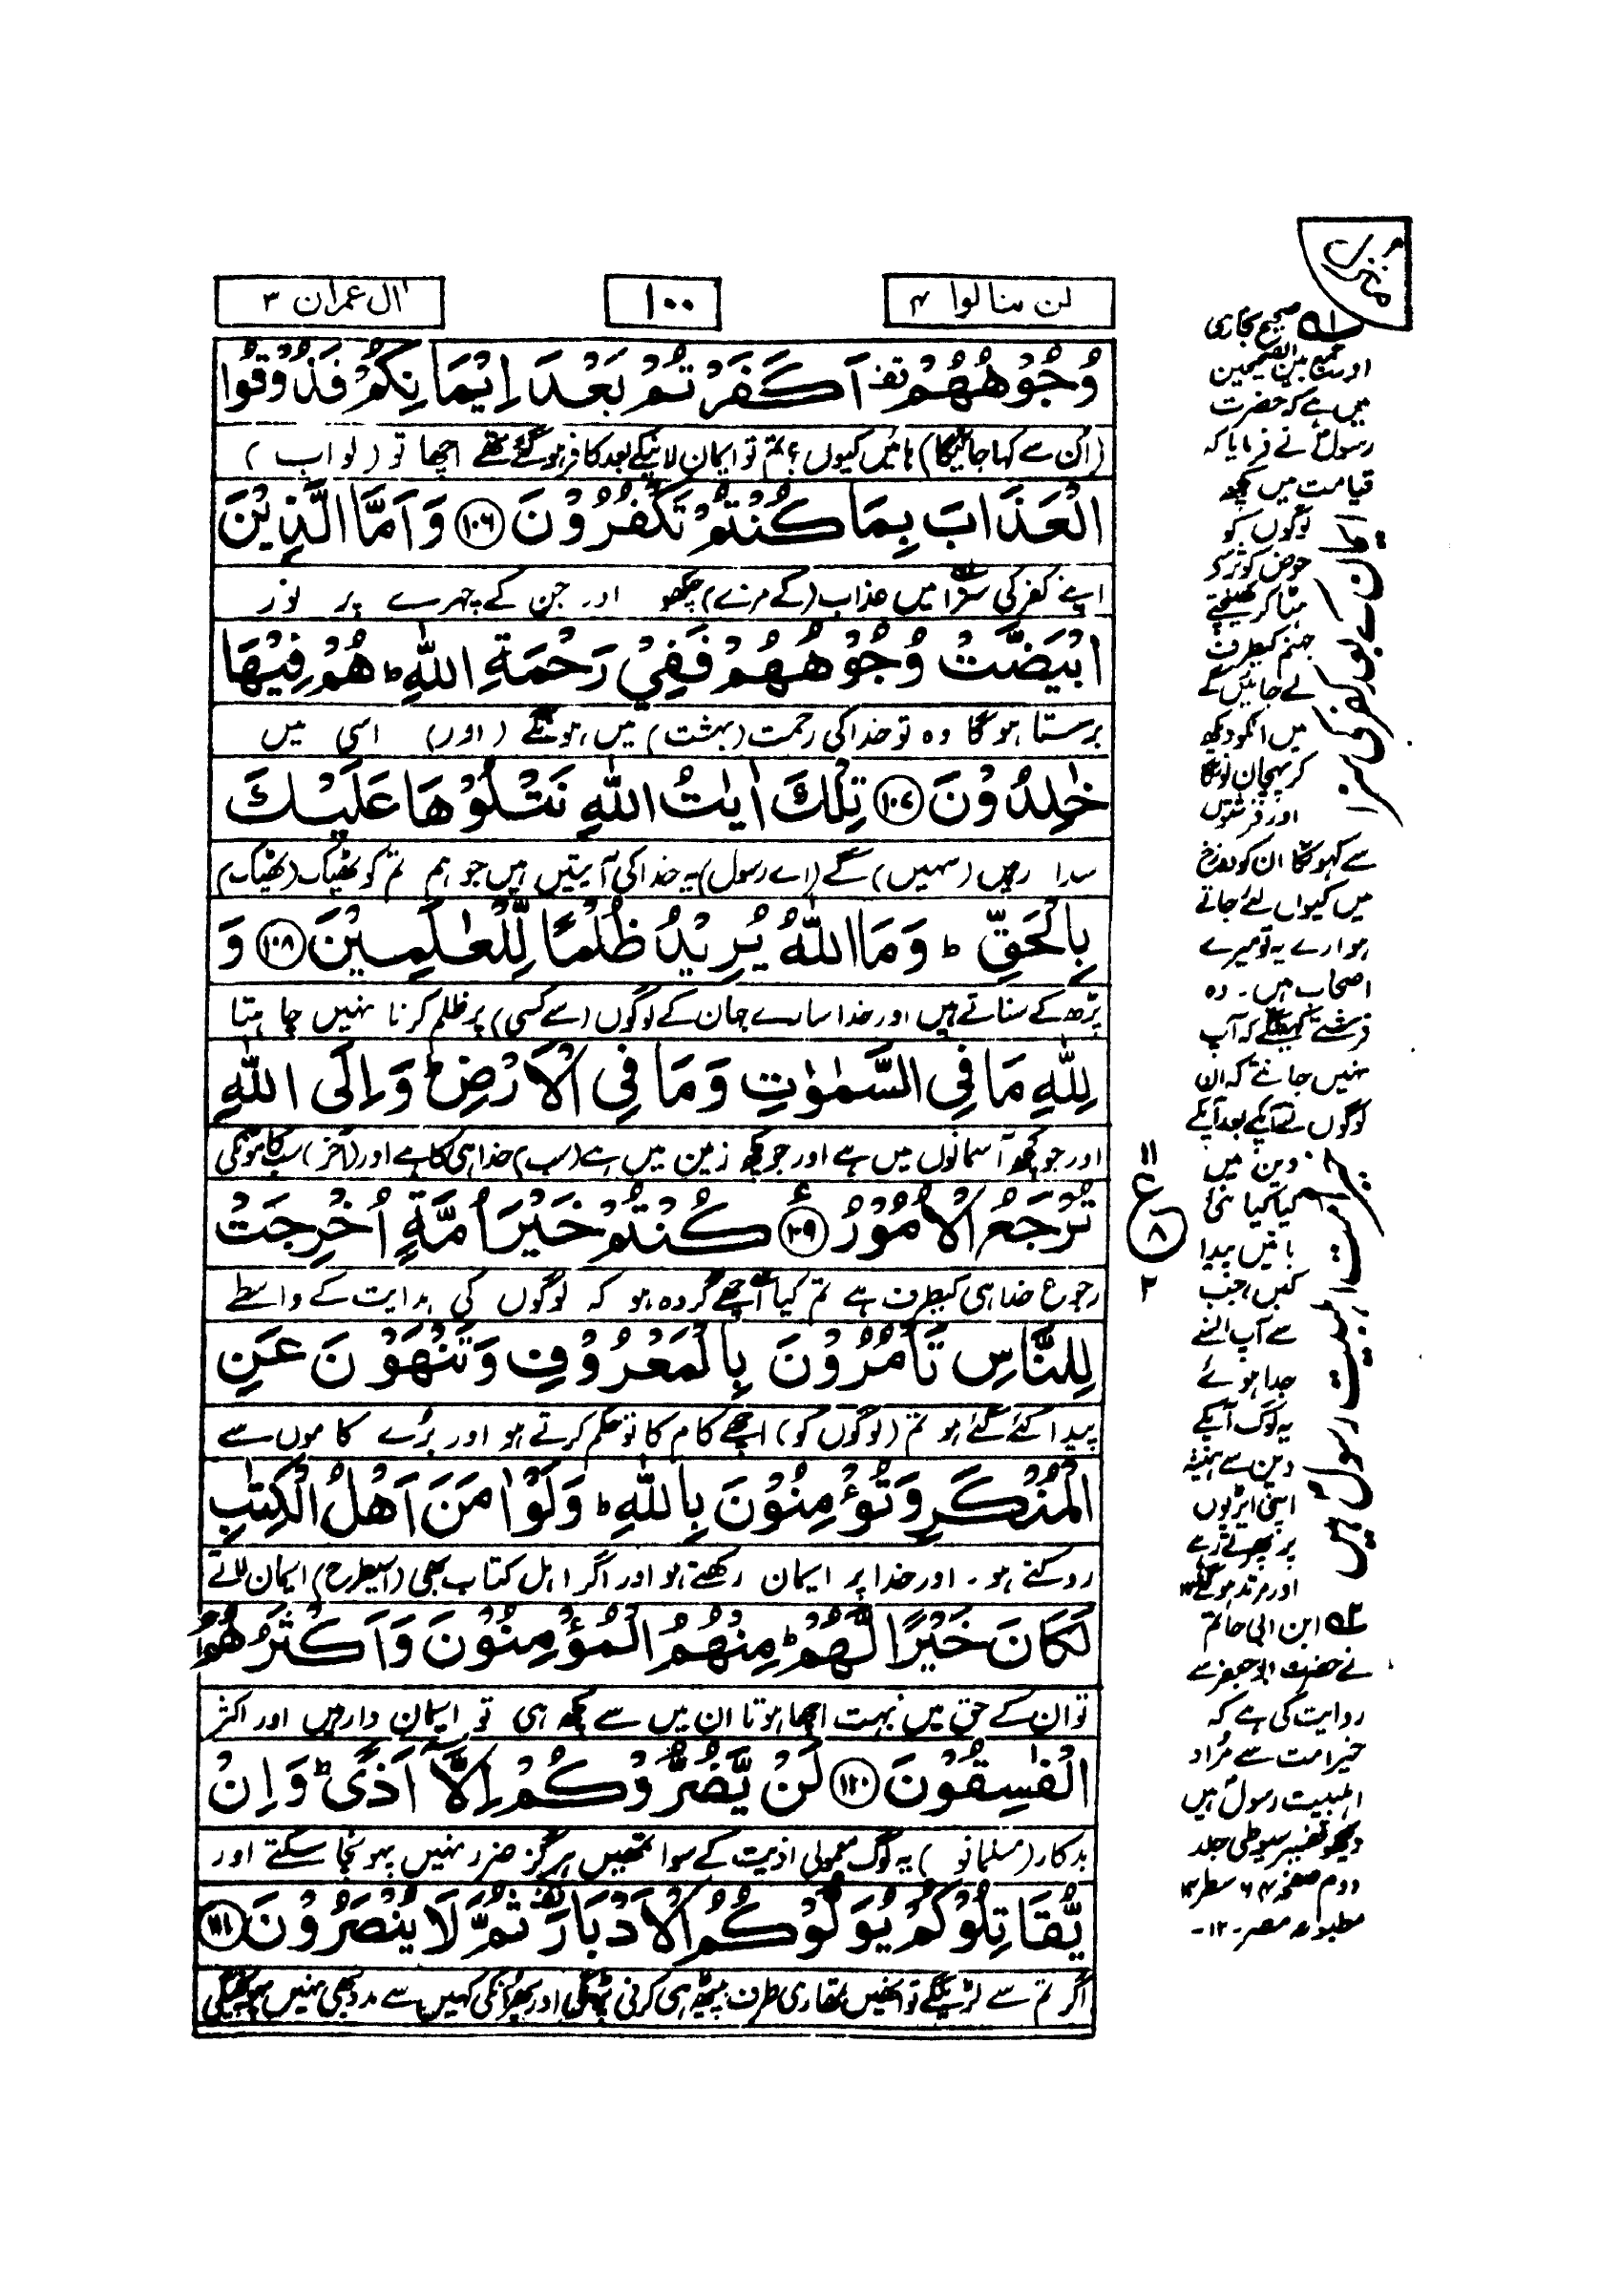 لن تنالوا ۴
۱۰۰
اٰل عمران ۳
وُجُوْهُهُمْ قف اَكَفَرْتُمْ بَعْدَ اِيْمَانِكُمْ فَذُوْقُوا
(ان سے کہا جائیگا) ہائیں کیوں؟ تم تو ایمان لانیکے بعد کافر ہو گئے تھے اچھا تو (لو اب)
الْعَذَابَ بِمَا كُنْتُمْ تَكْفُرُوْنَ ۱۰۶ وَاَمَّا الَّذِيْنَ
اپنے کفر کی سزا میں عذاب (کے مزے) چکھو اور جن کے چہرے پر نور
ابْيَضَّتْ وُجُوْهُهُمْ فَفِيْ رَحْمَةِ اللّٰهِ ط هُمْ فِيْهَا
برستا ہوگا وہ تو خدا کی رحمت (بہشت) میں ہونگے (اور) اسی میں
خٰلِدُوْنَ ۱۰۷ تِلْكَ اٰيٰتُ اللّٰهِ نَتْلُوْهَا عَلَيْكَ
سدا رہیں (سہیں) گے (اے رسول) یہ خدا کی آیتیں ہیں جو ہم تم کو ٹھیک (ٹھیک)
بِالْحَقِّ ط وَمَا اللّٰهُ يُرِيْدُ ظُلْمًا لِّلْعٰلَمِيْنَ ۱۰۸ وَ
پڑھ کے سناتے ہیں اور خدا سارے جہان کے لوگوں (سے کسی) پر ظلم کرنا نہیں چاہتا
لِلّٰهِ مَا فِي السَّمٰوٰتِ وَمَا فِي الْاَرْضِ ط وَاِلَى اللّٰهِ
اور جو کچھ آسمانوں میں ہے اور جو کچھ زمین میں ہے (سب) خدا ہی کا ہے اور (آخر) سب کاموں کی
تُرْجَعُ الْاُمُوْرُ ۱۰۹ ع كُنْتُمْ خَيْرَ اُمَّةٍ اُخْرِجَتْ
رجوع خدا ہی کیطرف ہے تم کیا اچھے گروہ ہو کہ لوگوں کی ہدایت کے واسطے
لِلنَّاسِ تَاْمُرُوْنَ بِالْمَعْرُوْفِ وَتَنْهَوْنَ عَنِ
پیدا کئے گئے ہو تم (لوگوں کو) اچھے کام کا تو حکم کرتے ہو اور بُرے کاموں سے
الْمُنْكَرِ وَتُؤْمِنُوْنَ بِاللّٰهِ ط وَلَوْ اٰمَنَ اَهْلُ الْكِتٰبِ
روکتے ہو۔ اور خدا پر ایمان رکھتے ہو اور اگر اہل کتاب بھی (اسیطرح) ایمان لاتے
لَكَانَ خَيْرًا لَّهُمْ ط مِنْهُمُ الْمُؤْمِنُوْنَ وَاَكْثَرُهُمُ
تو ان کے حق میں بہت اچھا ہوتا ان میں سے کچھ ہی تو ایمان دار ہیں اور اکثر
الْفٰسِقُوْنَ ۱۱۰ لَنْ يَّضُرُّوْكُمْ اِلَّا اَذًى ط وَاِنْ
بدکار (مسلمانو) یہ لوگ معمولی اذیت کے سوا تمھیں ہرگز ضرر نہیں پہونچا سکتے اور
يُّقَاتِلُوْكُمْ يُوَلُّوْكُمُ الْاَدْبَارَ قف ثُمَّ لَا يُنْصَرُوْنَ ۱۱۱
اگر تم سے لڑینگے تو انھیں تمھاری طرف پیٹھ ہی کرنی پڑیگی اور پھر انکی کہیں سے مدد بھی نہیں پہونچیگی
منزل
۱ صحیح بخاری
اور جمع بین الصحیحین
میں ہے کہ حضرت
رسولؐ نے فرمایا کہ
قیامت میں کچھ
لوگوں کو
حوض کوثر سے
ہٹا کر کھینچتے
جہنم کیطرف
لے جائیں گے
میں انکو دیکھ
کر پہچان لونگا
اور فرشتوں
سے کہونگا ان کو دوزخ
میں کیوں لئے جاتے
ہو ارے یہ تو میرے
اصحاب ہیں۔ وہ
فرشتے کہینگے کہ آپ
نہیں جانتے کہ ان
لوگوں نے آپکے بعد آپکے
دین میں
کیا کیا نئی
باتیں پیدا
کیں اجب
سے آپ انسے
جدا ہوئے
یہ لوگ آپکے
دین سے ہمیشہ
اپنی ایڑیوں
پر پھرتے رہے
اور مرتد ہو گئے ۱۲
۲ ابن ابی حاتم
نے حضرت ابو جعفر سے
روایت کی ہے کہ
خیر امت سے مُراد
اہلبیت رسولؐ ہیں
دیکھو تفسیر سیوطی جلد
دوم صفحہ ۶۴ سطر ۴
مطبوعہ مصر۔ ۱۲۔
ایمان کے بعد کفر کی سزا
خیر امت اہلبیت رسولؐ ہیں
۱۱
ع
۸
۲